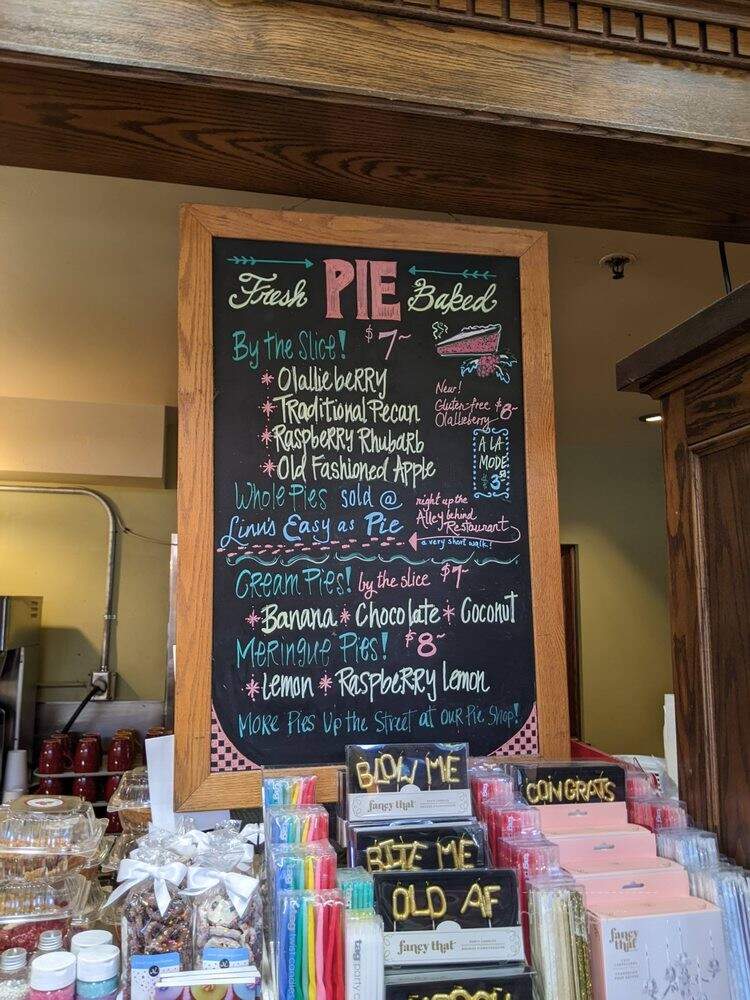 Fresh PIE Baked
By the Slice! $7~
* OlalliebeRRy
* Traditional Pecan
* RaspbeRRy Rhubarb
* Old Fashioned Apple
New!
Gluten-free $8~
Olallieberry
A LA
MODE
$3
Whole Pies sold @
Linn's Easy as Pie
right up the
Alley behind
Restaurant
a very short walk!
Cream Pies! by the slice $7~
* Banana * Chocolate * Coconut
Meringue Pies! $8~
* Lemon * RaspbeRRy Lemon
More Pies Up the Street at our Pie Shop!
BLOW ME
fancy that
CONGRATS
BITE ME
OLD AF
fancy that
fancy
that